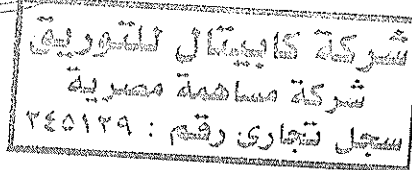 شركة كابيتال للتوريق
شركة مساهمة مصرية
سجل تجارى رقم : ٣٤٥١٢٩